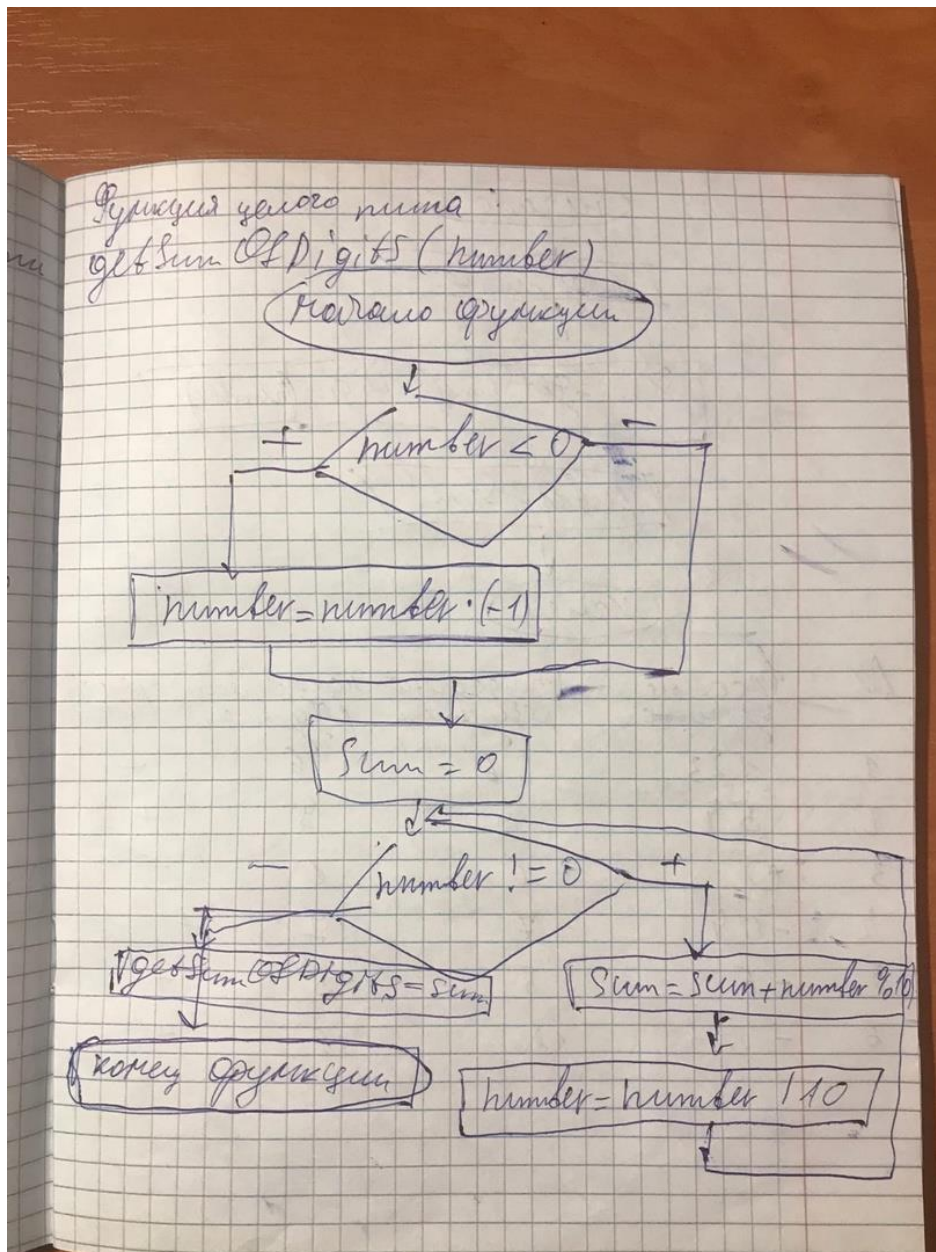 Функция целого типа
getSumOfDigits (number)
начало функции
number < 0
+
-
number = number · (-1)
Sum = 0
number != 0
-
+
getSumOfDigits = sum
Sum = sum + number % 10
конец функции
number = number / 10